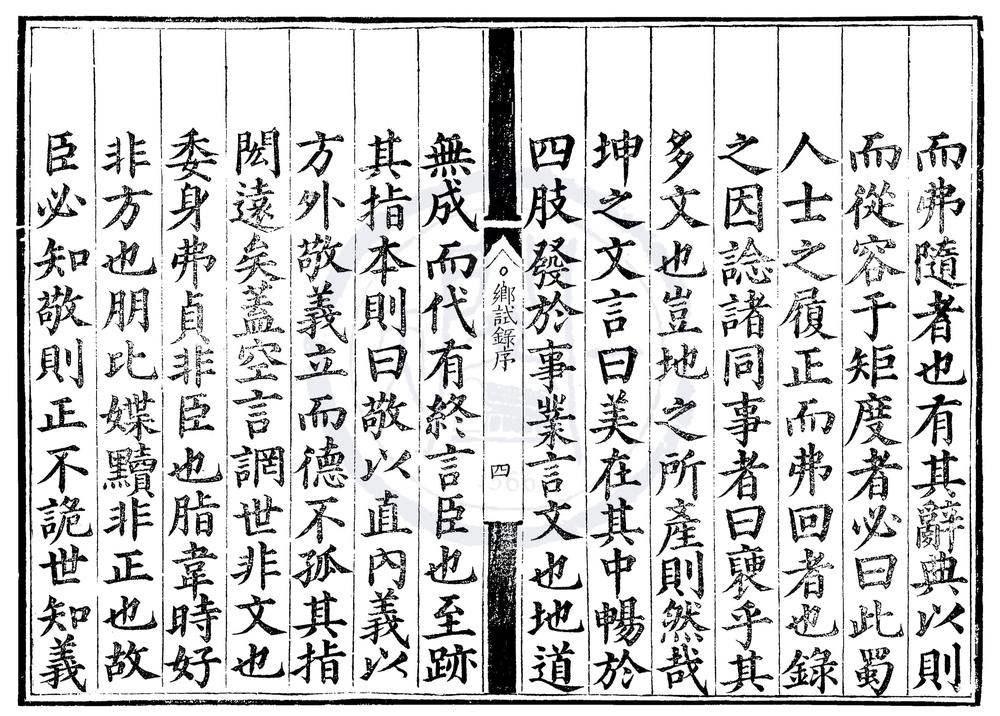 而弗隨者也有其辭典以則
而從容于矩度者必曰此蜀
人士之履正而弗回者也錄
之因諗諸同事者曰裒乎其
多文也豈地之所產則然哉
坤之文言曰美在其中暢於
四肢發於事業言文也地道
鄉試錄序
四
無成而代有終言臣也至跡
其指本則曰敬以直內義以
方外敬義立而德不孤其指
閎遠矣蓋空言調世非文也
委身弗貞非臣也脂韋時好
非方也朋比媟黷非正也故
臣必知敬則正不詭世知義